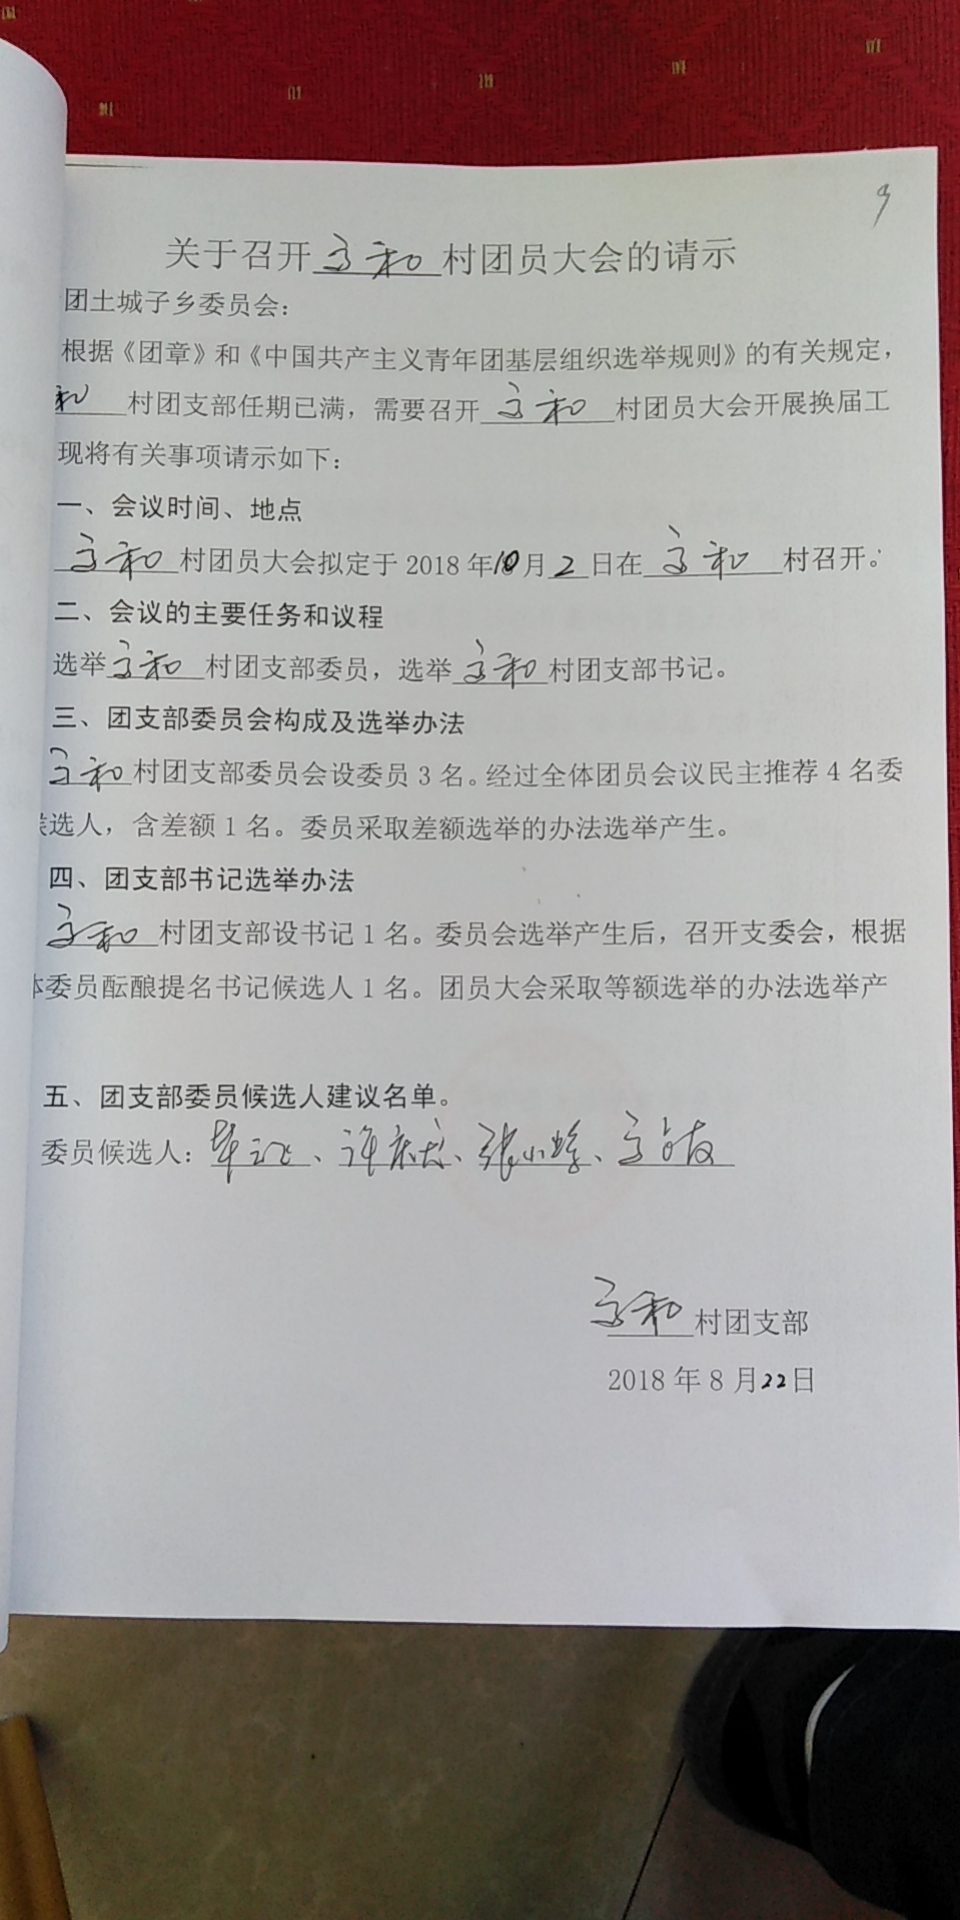 9
关于召开 和村团员大会的请示
团土城子乡委员会：
根据《团章》和《中国共产主义青年团基层组织选举规则》的有关规定，
和 村团支部任期已满，需要召开 和 村团员大会开展换届工
现将有关事项请示如下：
一、会议时间、地点
和 村团员大会拟定于 2018 年10月 2 日在 和 村召开。
二、会议的主要任务和议程
选举 和 村团支部委员，选举 和 村团支部书记。
三、团支部委员会构成及选举办法
和 村团支部委员会设委员 3 名。经过全体团员会议民主推荐 4 名委
选人，含差额 1 名。委员采取差额选举的办法选举产生。
四、团支部书记选举办法
和 村团支部设书记 1 名。委员会选举产生后，召开支委会，根据
体委员酝酿提名书记候选人 1 名。团员大会采取等额选举的办法选举产
五、团支部委员候选人建议名单。
委员候选人：
和 村团支部
2018 年 8 月22日